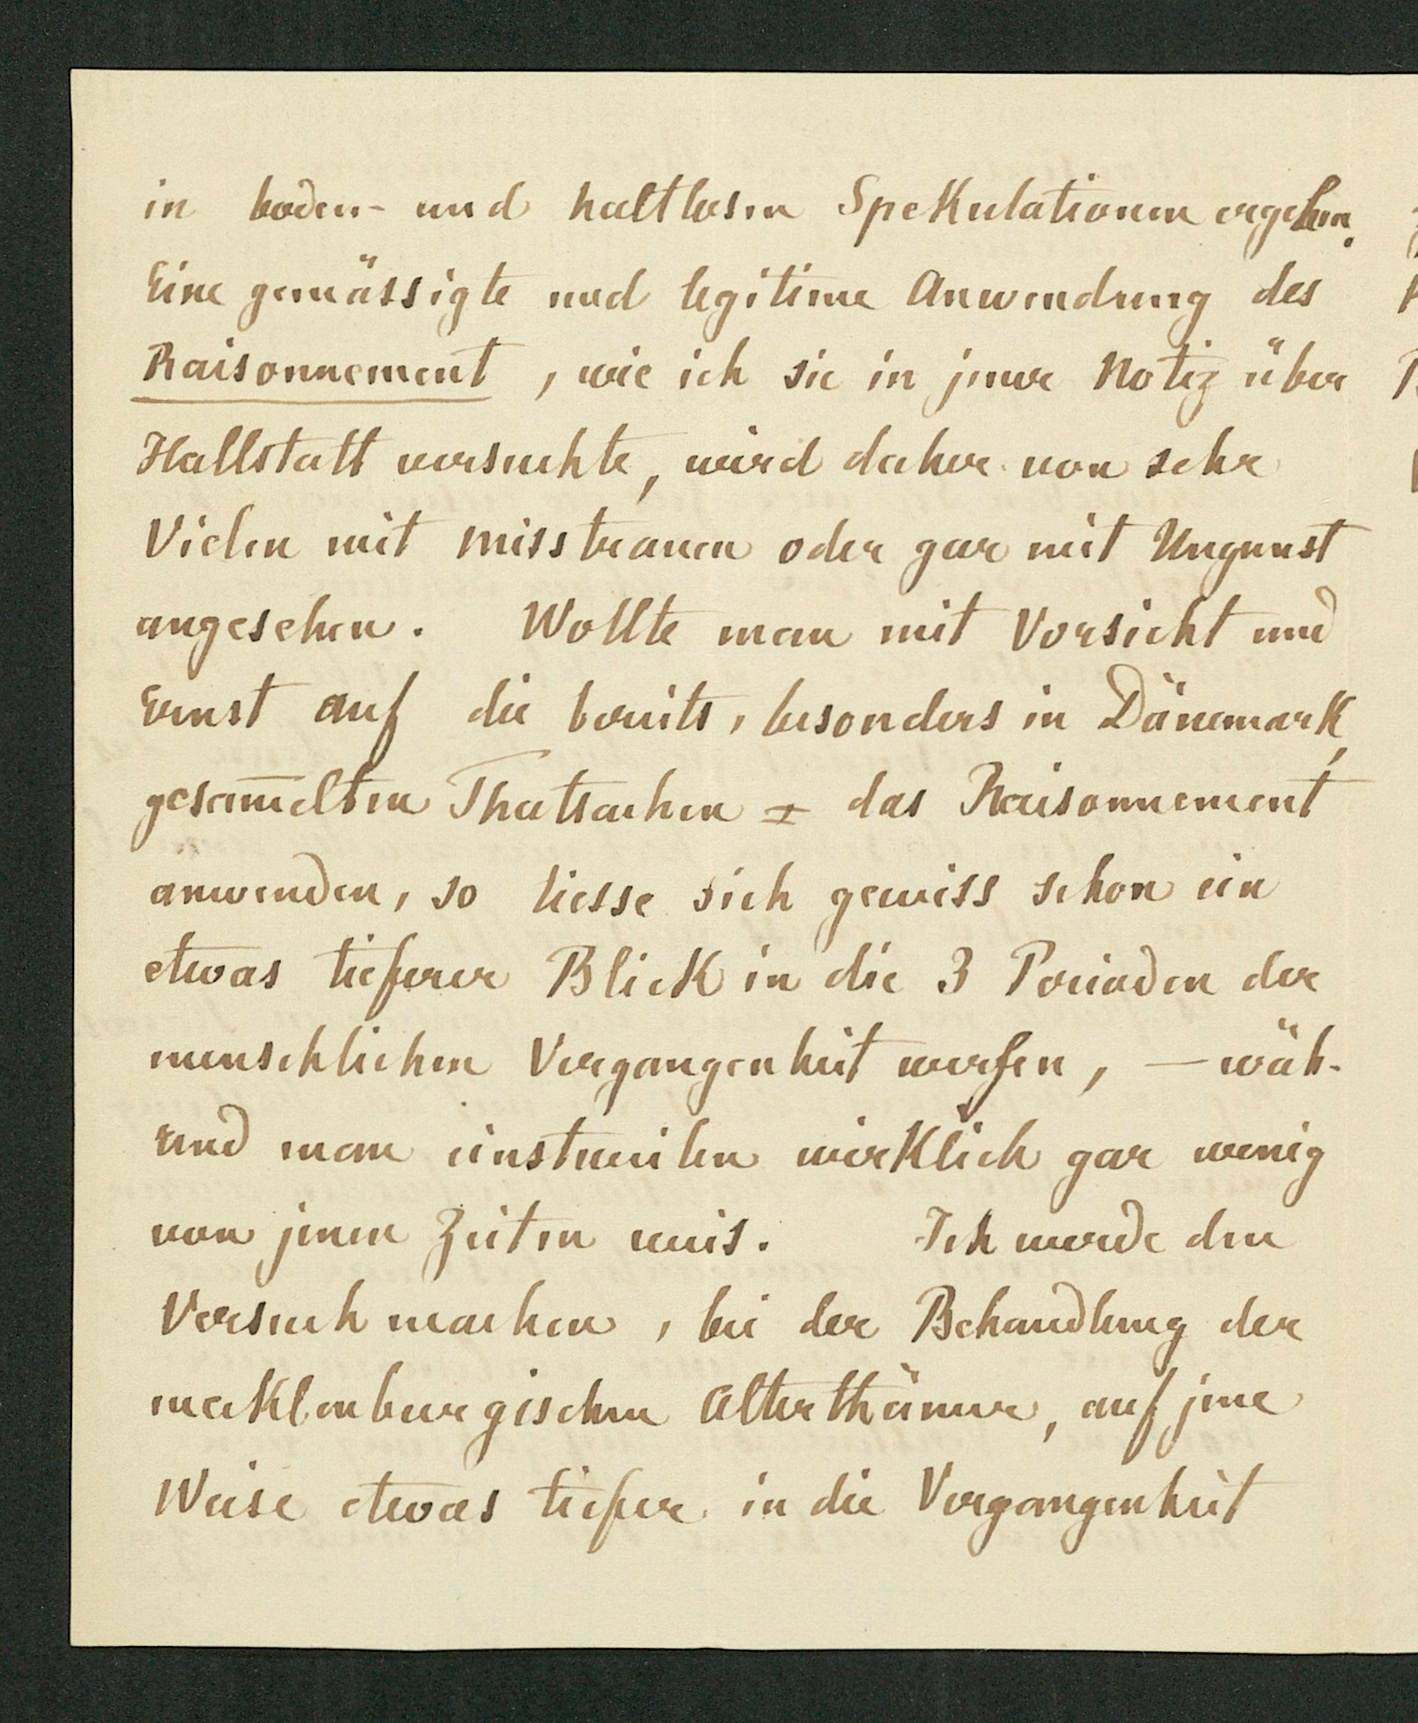 in boden- und haltlosen Spekulationen ergehen.
Eine gemässigte und legitime Anwendung des
Raisonnement, wie ich sie in jener Notiz über
Hallstatt versuchte, wird daher von sehr
Vielen mit Misstrauen oder gar mit Ungunst
angesehen. Wollte man mit Vorsicht und
Ernst auf die bereits, besonders in Dänemark,
gesam̅elten Thatsachen das Raisonnement
anwenden, so liesse sich gewiss schon ein
etwas tieferer Blick in die 3 Perioden der
menschlichen Vergangenheit werfen, — wäh-
rend man einstweilen wirklich gar wenig
von jenen Zeiten weis. Ich werde den
Versuch machen, bei der Behandlung der
meklenburgischen Alterthümer, auf jene
Weise etwas tiefer in die Vergangenheit